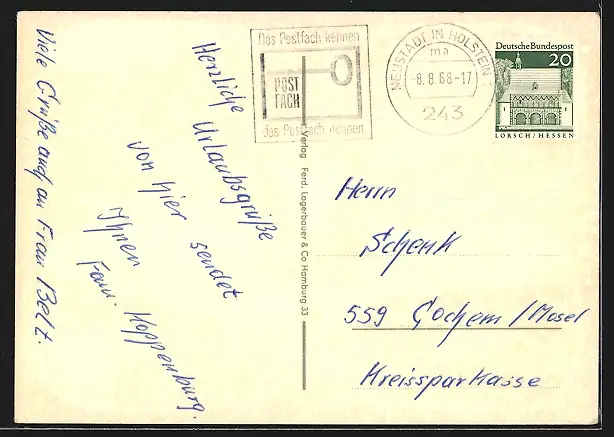 Viele Grüße auch an Frau Belz.
Herzliche Urlaubsgrüße
von hier sendet
Ihnen
Fam. Hoppenburg.
Das Postfach kennen
POST
FACH
das Postfach nennen
NEUSTADT IN HOLSTEIN 1
ma
-8.8.68-17
243
Deutsche Bundespost
20
LORSCH/HESSEN
Verlag Ferd. Lagerbauer & Co Hamburg 33
Herrn
Schenk
559 Cochem/Mosel
Kreissparkasse